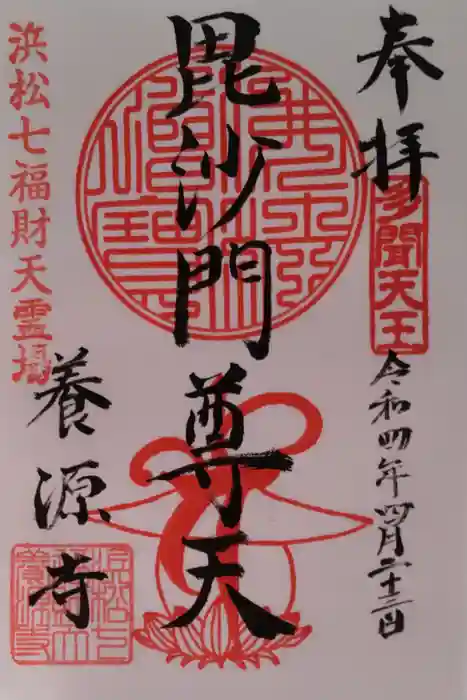 奉拝
多聞天王
令和四年四月二十三日
毘沙門尊天
養源寺
浜松七福財天霊場